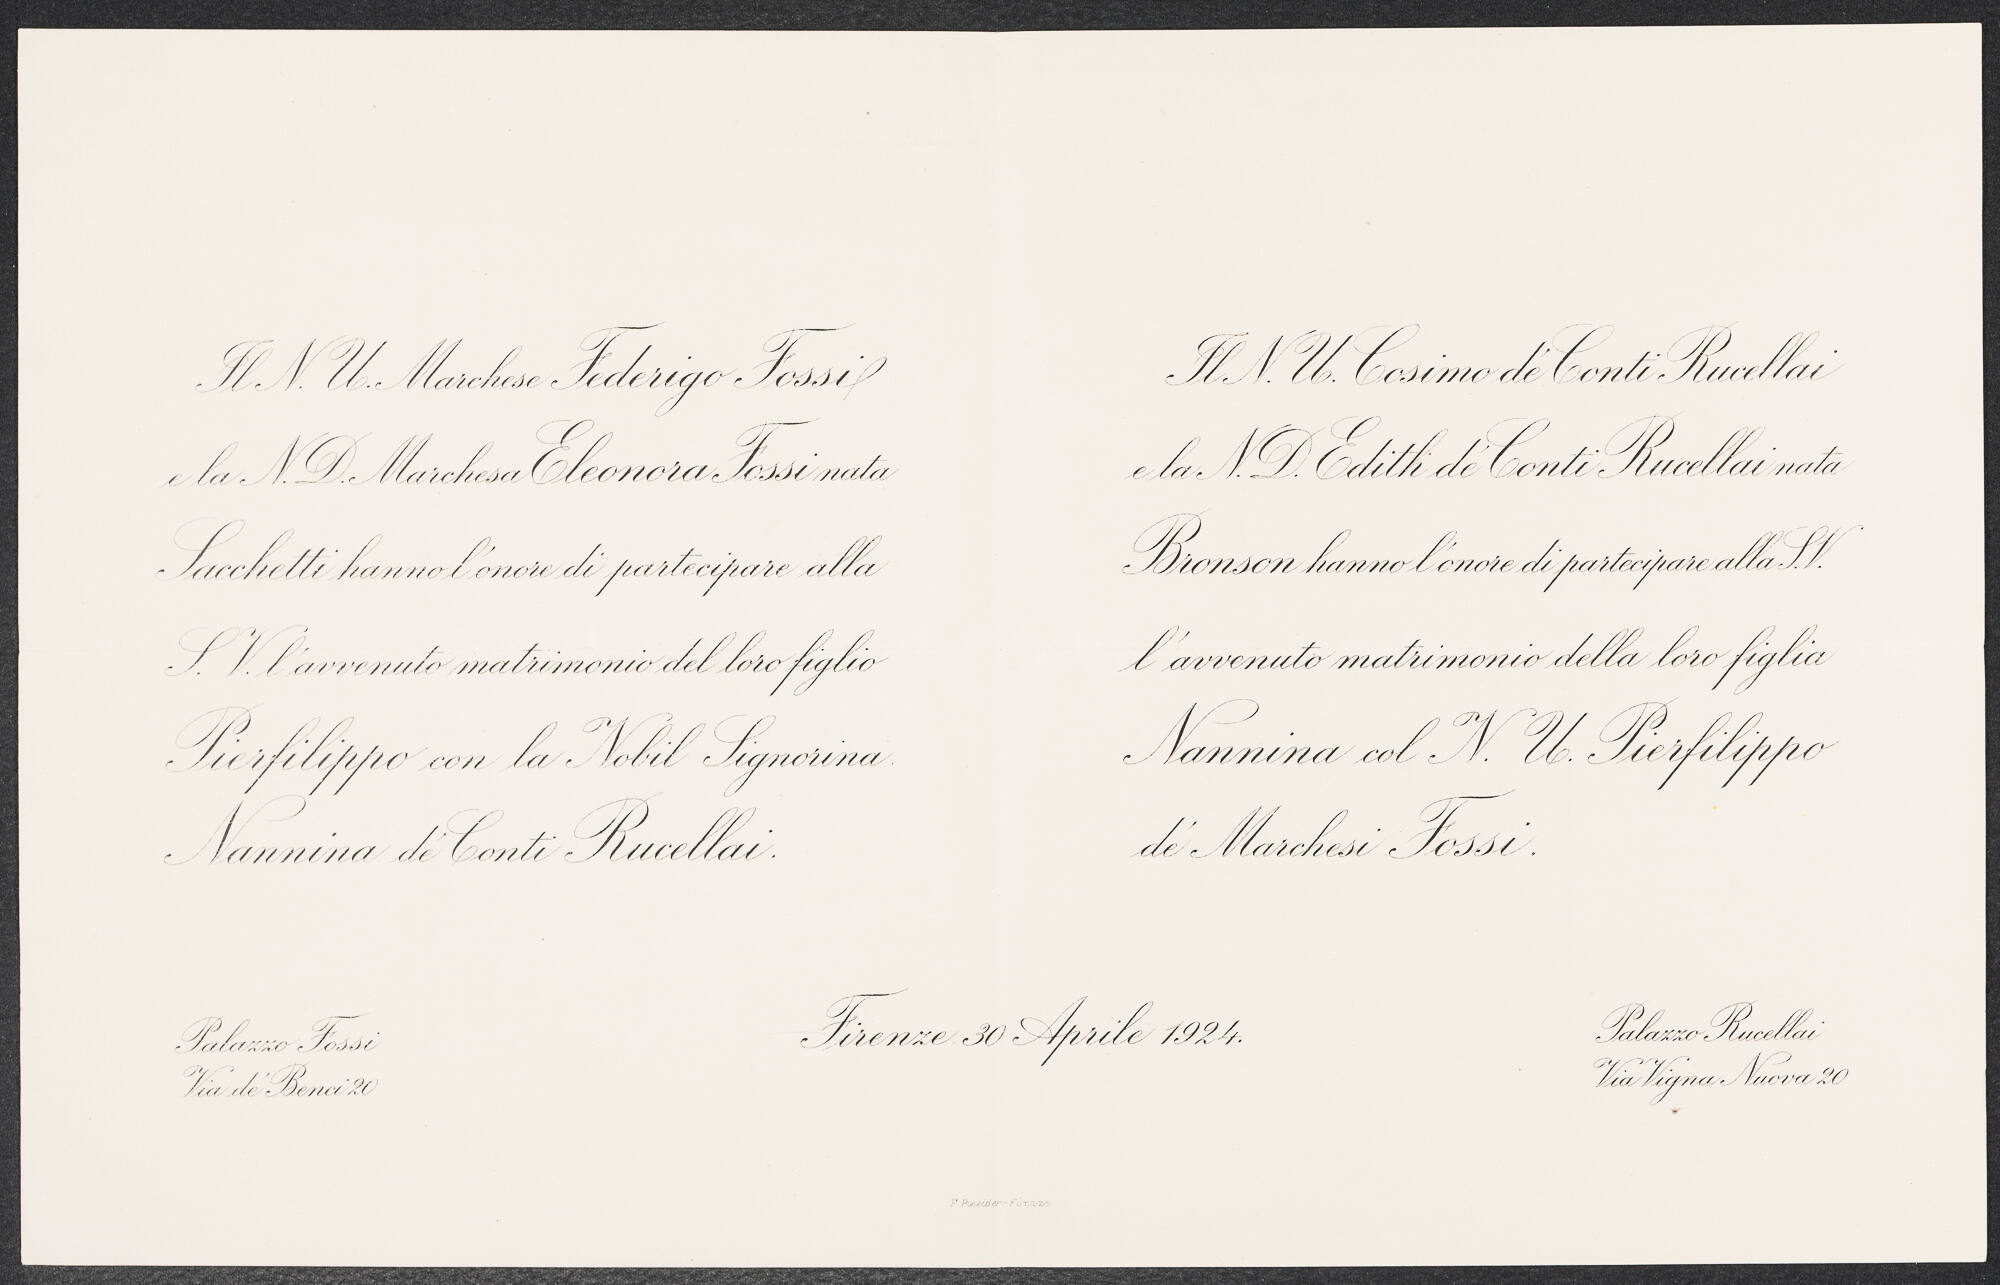 Il N. U. Marchese Federigo Fossi
e la N. D. Marchesa Eleonora Fossi nata
Sacchetti hanno l'onore di partecipare alla
S. V. l'avvenuto matrimonio del loro figlio
Pierfilippo con la Nobil Signorina
Nannina de' Conti Rucellai.
Il N. U. Cosimo de' Conti Rucellai
e la N. D. Edith de' Conti Rucellai nata
Bronson hanno l'onore di partecipare alla S. V.
l'avvenuto matrimonio della loro figlia
Nannina col N. U. Pierfilippo
de' Marchesi Fossi.
Palazzo Fossi
Via de' Benci 20
Firenze 30 Aprile 1924.
Palazzo Rucellai
Via Vigna Nuova 20
F. Pineider-Firenze